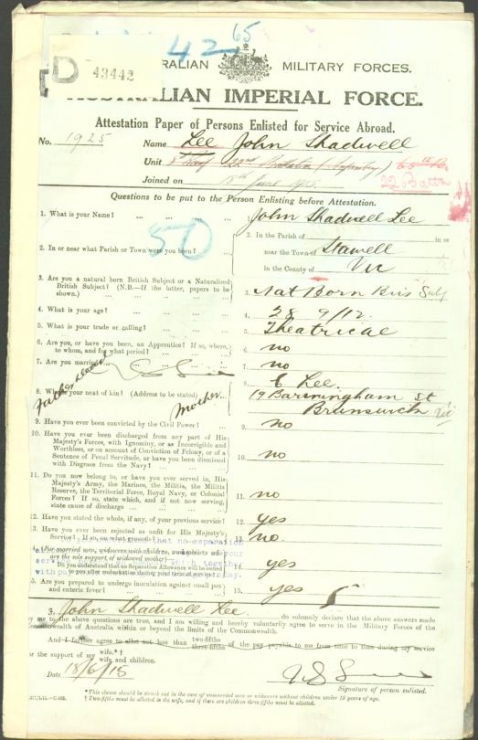 4265
D 43442
AUSTRALIAN MILITARY FORCES.
AUSTRALIAN IMPERIAL FORCE.
Attestation Paper of Persons Enlisted for Service Abroad.
No. 1925 Name Lee John Shadwell
Unit
Joined on
Questions to be put to the Person Enlisting before Attestation.
1. What is your Name? ... 1. John Shadwell Lee
2. In or near what Parish or Town were you born? ... 2. In the Parish of in or
near the Town of Stawell
in the County of Vic
50
3. Are you a natural born British Subject or a Naturalized
British Subject? (N.B.—If the latter, papers to be
shown.) 3. Nat Born Bris Subj
4. What is your age? 4. 28 9/12
5. What is your trade or calling? 5. Theatrical
6. Are you, or have you been, an Apprentice? If so, where,
to whom, and for what period? 6. no
7. Are you married? 7. no
Father dead
8. Who is your next of kin? (Address to be stated) Mother 8. C Lee.
19 Barmingham St
Brunswick Vic
9. Have you ever been convicted by the Civil Power? 9. no
10. Have you ever been discharged from any part of His
Majesty's Forces, with Ignominy, or as Incorrigible and
Worthless, or on account of Conviction of Felony, or of a
Sentence of Penal Servitude, or have you been dismissed
with Disgrace from the Navy? 10. no
11. Do you now belong to, or have you ever served in, His
Majesty's Army, the Marines, the Militia, the Militia
Reserve, the Territorial Force, Royal Navy, or Colonial
Forces? If so, state which, and if not now serving,
state cause of discharge 11. no
12. Have you stated the whole, if any, of your previous service? 12. yes
13. Have you ever been rejected as unfit for His Majesty's
Service? If so, on what grounds? 13. no.
(For married men, widowers with children, and soldiers who
are the sole support of widowed mother)
Do you understand that no Separation Allowance will be issued
to you after embarkation during your term of service? yes
15. Are you prepared to undergo inoculation against small pox
and enteric fever? 15. yes
I, John Shadwell Lee do solemnly declare that the above answers made
by me to the above questions are true, and I am willing and hereby voluntarily agree to serve in the Military Forces of the
Commonwealth of Australia within or beyond the limits of the Commonwealth.
And I further agree to allot not less than two-fifths
three-fifths of the pay payable to me from time to time during my service
for the support of my wife.*
wife and children.
Date 18/6/15
Signature of person enlisted.
*This clause should be struck out in the case of unmarried men or widowers without children under 18 years of age.
†Two-fifths must be allotted to the wife, and if there are children three-fifths must be allotted.